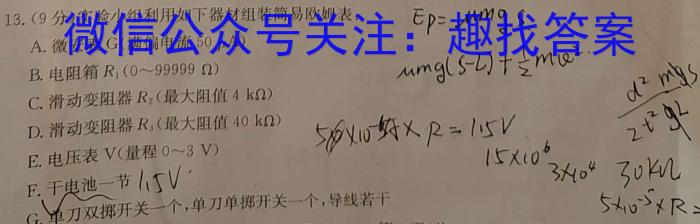 13.(9分)实验小组利用如下器材组装简易欧姆表
微信公众号关注：趣找答案
A. 微安表 G(满偏电流50
B. 电阻箱 R₁(0～99999 Ω)
C. 滑动变阻器 R₂(最大阻值 4 kΩ)
D. 滑动变阻器 R₃(最大阻值 40 kΩ)
E. 电压表 V(量程 0～3 V)
F. 干电池一节 1.5V
G. 单刀双掷开关一个,单刀单掷开关一个,导线若干
Ep=
μmg(s-L)+½m
× R = 1.5V
15×10⁶
3×10⁴
30kΩ
5×10⁻⁵×R=